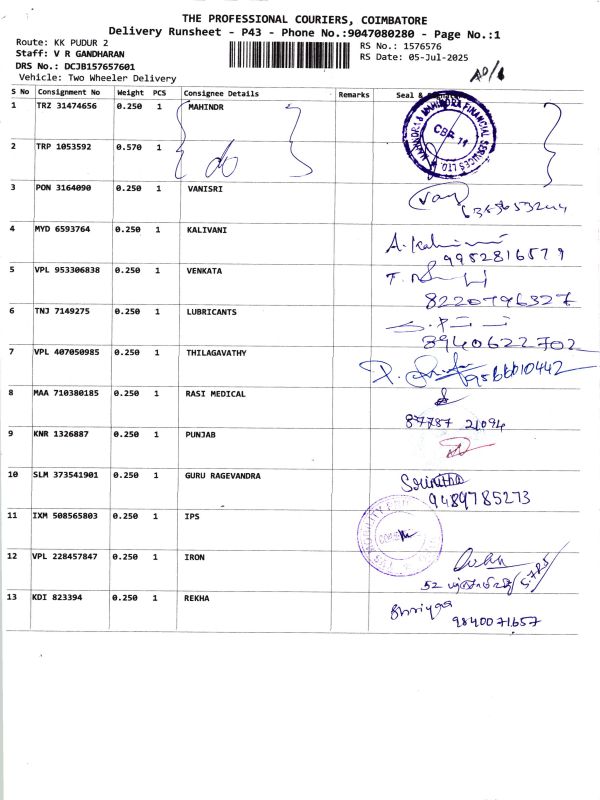 THE PROFESSIONAL COURIERS, COIMBATORE
Delivery Runsheet - P43 - Phone No.:9047080280 - Page No.:1
Route: KK PUDUR 2
Staff: V R GANDHARAN
DRS No.: DCJB157657601
Vehicle: Two Wheeler Delivery
RS No.: 1576576
RS Date: 05-Jul-2025
S No Consignment No Weight PCS Consignee Details Remarks Seal &
1 TRZ 31474656 0.250 1 MAHINDR
MAHINDRA & MAHINDRA FINANCIAL SERVICES LTD.
CBE
2 TRP 1053592 0.570 1 do
3 PON 3164090 0.250 1 VANISRI
4 MYD 6593764 0.250 1 KALIVANI
9952816579
5 VPL 953306838 0.250 1 VENKATA
8220796327
6 TNJ 7149275 0.250 1 LUBRICANTS
8940622702
7 VPL 407050985 0.250 1 THILAGAVATHY
9566610442
8 MAA 710380185 0.250 1 RASI MEDICAL
87787 21094
9 KNR 1326887 0.250 1 PUNJAB
10 SLM 373541901 0.250 1 GURU RAGEVANDRA
Srinitha
9489785273
11 IXM 508565803 0.250 1 IPS
12 VPL 228457847 0.250 1 IRON
52
13 KDI 823394 0.250 1 REKHA
9840071657